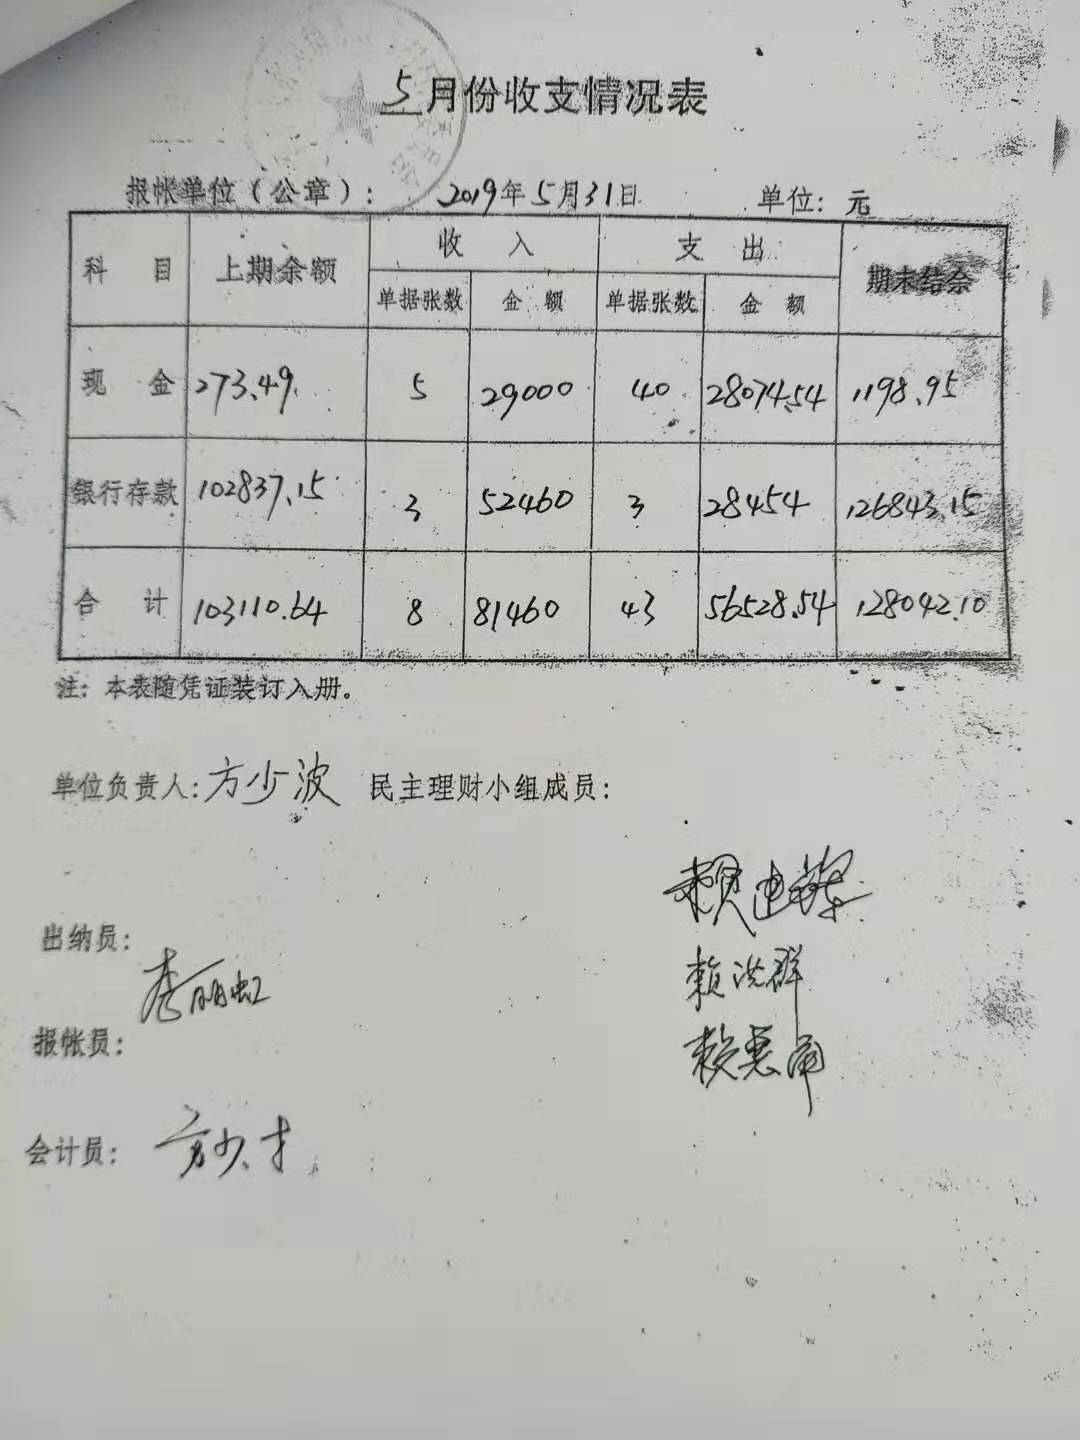 5月份收支情况表
报帐单位（公章）： 2019年5月31日 单位：元
科 目 上期余额 收 入 支 出 期末结余
单据张数 金 额 单据张数 金 额
现 金 273.49 5 29000 40 28074.54 1198.95
银行存款 102837.15 3 52460 3 28454 126843.15
合 计 103110.64 8 81460 43 56528.54 128042.10
注：本表随凭证装订入册。
单位负责人：方少波 民主理财小组成员：
赖建
出纳员：
李丽虹
赖洪群
报帐员：
赖惠南
会计员：方少才